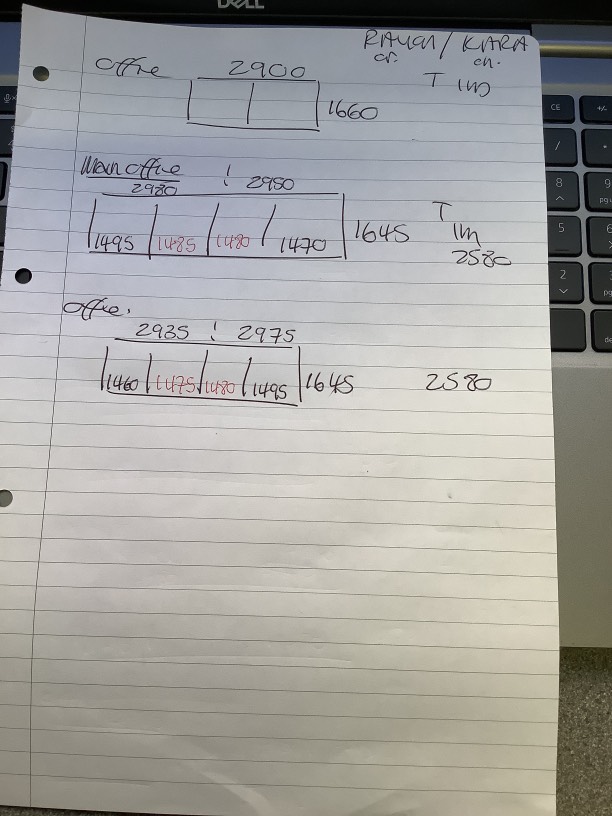 DELL
RAUCH / KARA
Office 2900
T 1m
1660
Main office
2980 ! 2980
1495 1485 1480 1470 1645
T
1m
2580
Office.
2935 ! 2975
1460 1475 1480 1495 1645 2580
CE +/-
/
8 9
5 6
2